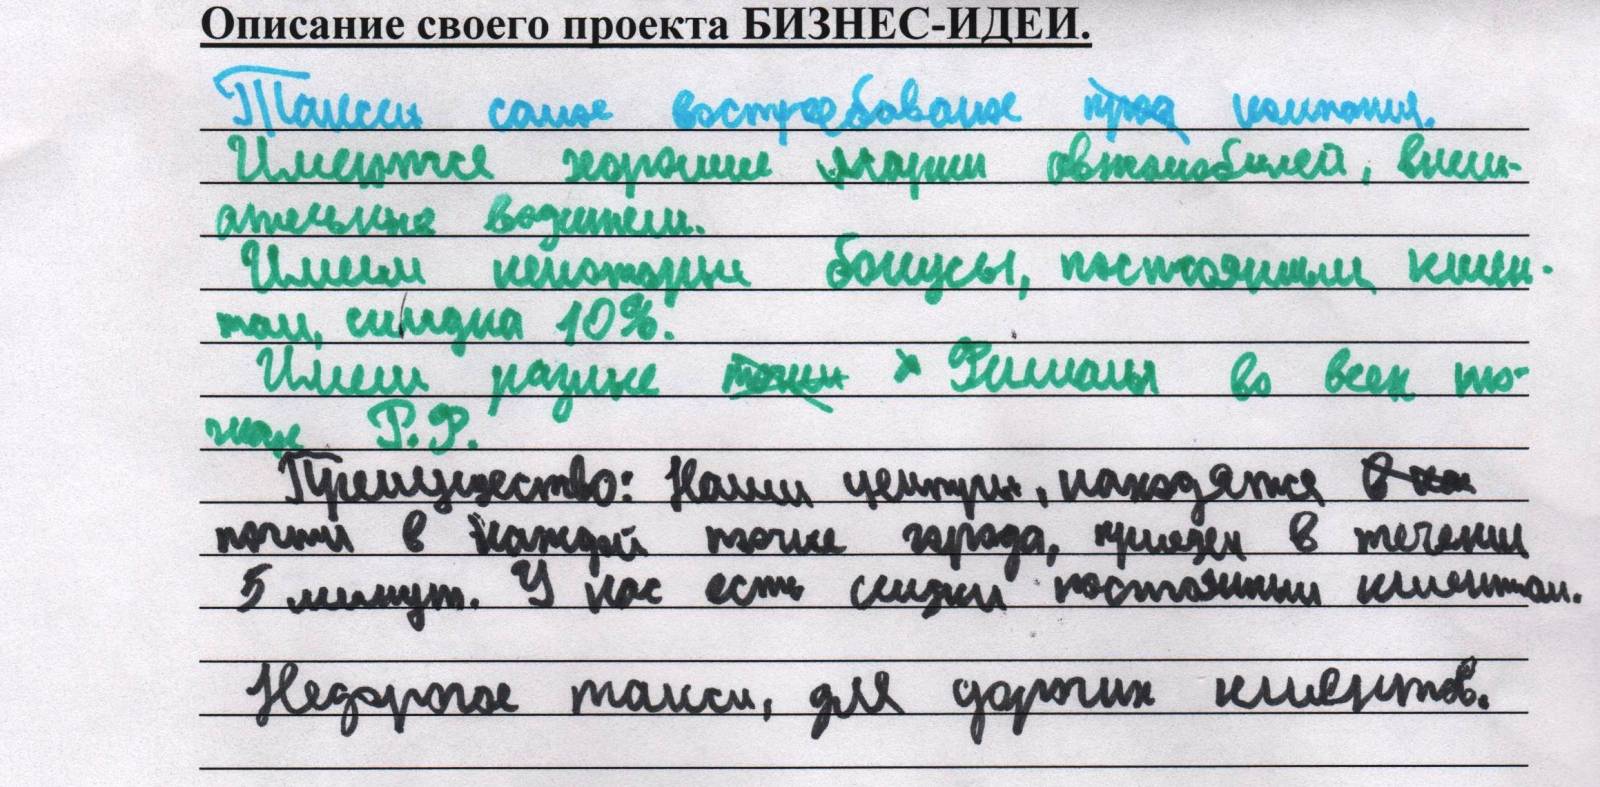 Описание своего проекта БИЗНЕС-ИДЕИ.
Такси самое востребованое компания.
Имеются хорошие марки автомобилей, вним-
ательные водители.
Имеем некоторые бонусы, постоянным клиен-
там, скидка 10%.
Имеем разные точки Филиалы во всех то-
чках Р.Ф.
Преимущество: Наши центры, находятся
почти в каждой точке города, приезд в течении
5 минут. У нас есть скидки постоянным клиентам.
Недорогое такси, для дорогих клиентов.